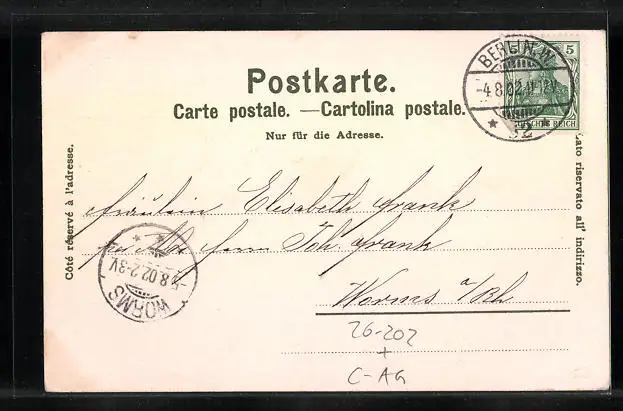 Postkarte.
Carte postale. — Cartolina postale.
Nur für die Adresse.
Côté réservé à l'adresse.
Lato riservato all' indirizzo.
BERLIN. W
-4.8.02.11-12V.
* 52 *
5
DEUTSCHES REICH
Fräulein Elisabeth Frank
Frank
Worms a/Rh
WORMS
8.02.2-3V
26-202
+
C-AG